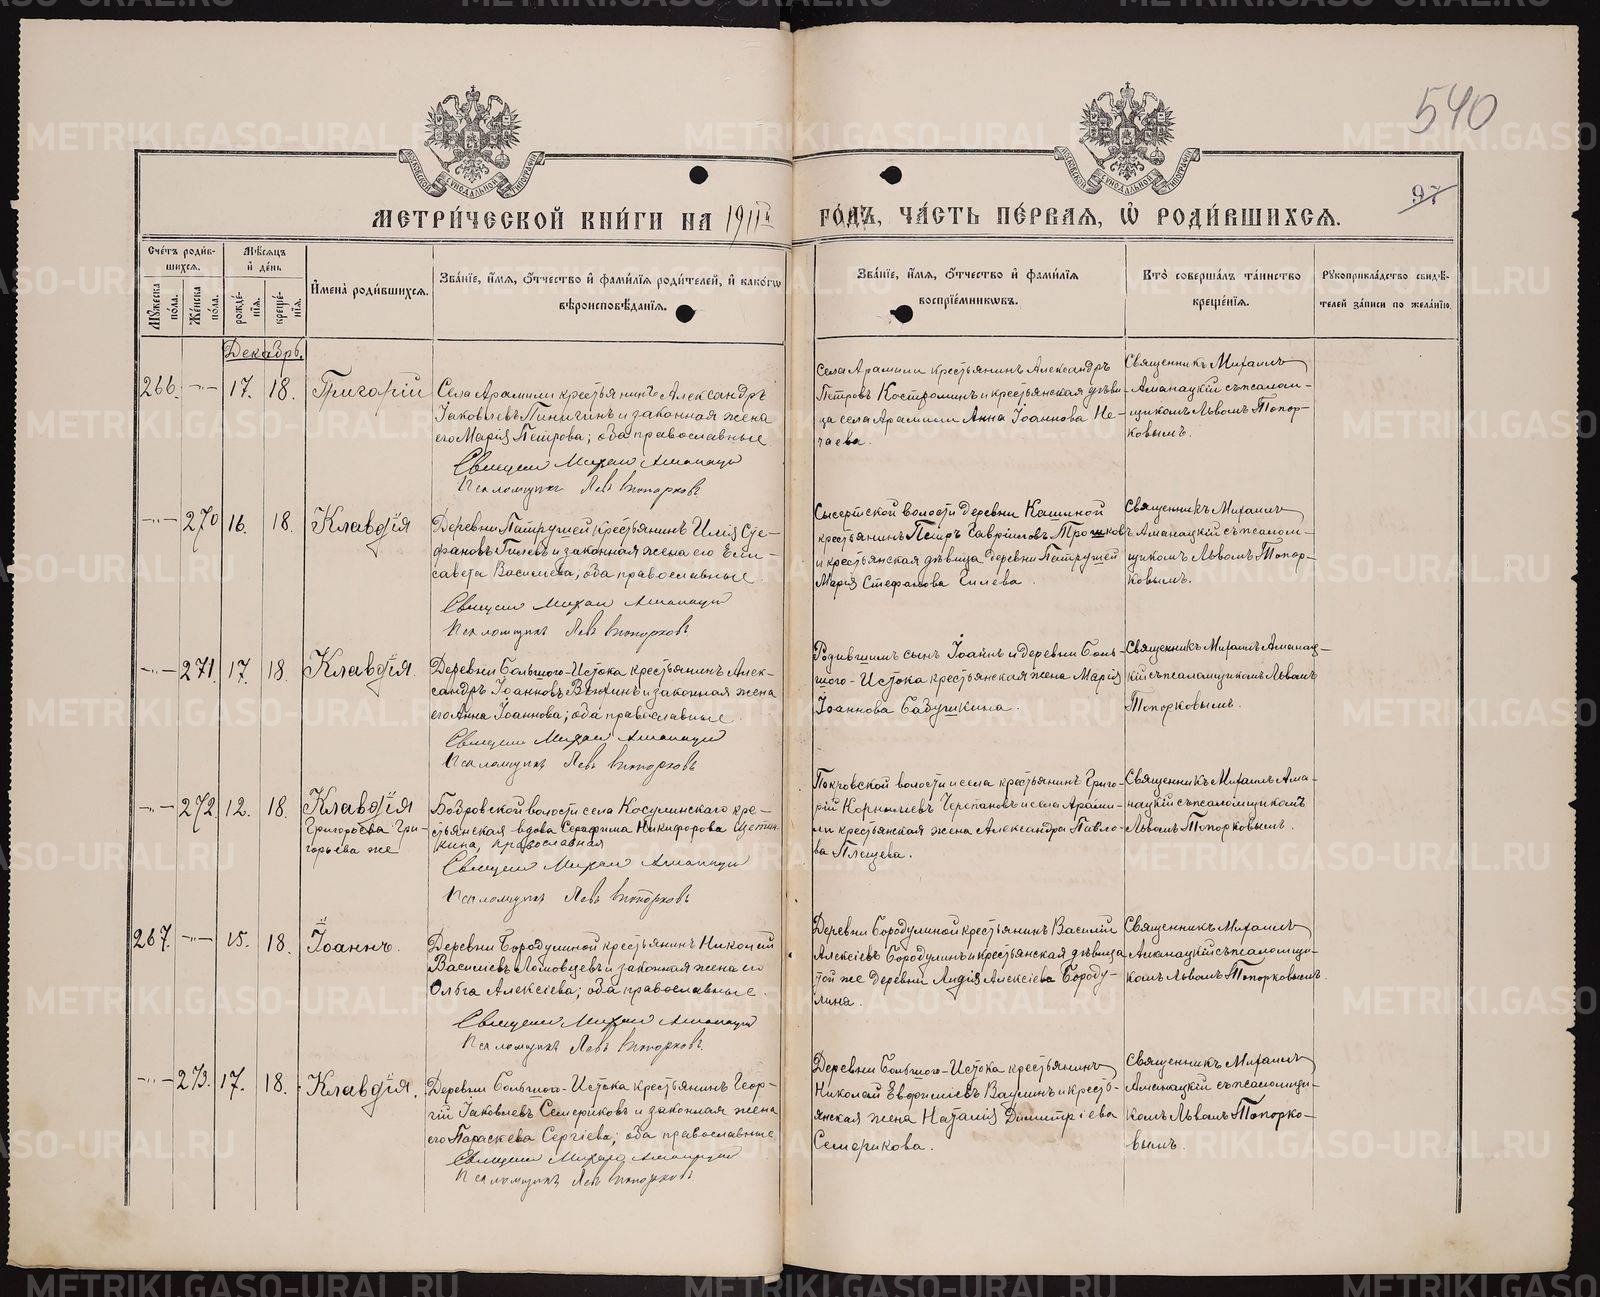 540
97
МЕТРИ́ЧЕСКОЙ КНИ́ГИ НА 1911й ГО́ДЪ, ЧА́СТЬ ПЕ́РВАЯ, Ѽ РОДИ́ВШИХСЯ.
Сче́тъ роди́вшихся.
Мꙋ́жеска по́ла.
Же́нска по́ла.
Мѣ́сяцъ и҆ де́нь
рожде́нїя.
креще́нїя.
И҆мена̀ роди́вшихся.
Зва́нїе, и҆́мя, ѻ҆́тчество и҆ фами́лїя роди́телей, и҆ како́гѡ вѣроисповѣ́данїя.
Зва́нїе, и҆́мя, ѻ҆́тчество и҆ фами́лїя воспрїе́мникѡвъ.
Кто̀ соверша́лъ та́инство креще́нїя.
Рꙋкоприкла́дство свидѣ́телей за́писи по жела́нїю.
Декабрь.
266. -"- 17. 18. Григорій
Села Арамили крестьянинъ Александръ
Іаковлевъ Пинигинъ и законная жена
его Марія Петрова; оба православные
Священникъ Михаилъ
Псаломщикъ Левъ Топорковъ
Села Арамили крестьянинъ Александръ
Петровъ Костроминъ и крестьянская дѣви-
ца села Арамили Анна Іоаннова Не-
чаева.
Священникъ Михаилъ
Аманацкій съ псалом-
щикомъ Львомъ Топор-
ковымъ.
-"- 270 16. 18. Клавдія
Деревни Патрушей крестьянинъ Илія Сте-
фановъ Гилевъ и законная жена его Ели-
савета Васильева; оба православные
Священникъ Михаилъ Аманацкій
Псаломщикъ Левъ Топорковъ
Сысертской волости деревни Кашиной
крестьянинъ Петръ Гавріиловъ Трошковъ
и крестьянская дѣвица деревни Патрушей
Марія Стефанова Гилева.
Священникъ Михаилъ
Аманацкій съ псалом-
щикомъ Львомъ Топор-
ковымъ.
-"- 271. 17. 18. Клавдія.
Деревни Большого-Истока крестьянинъ Алек-
сандръ Іоанновъ и законная жена
его Анна Іоаннова; оба православные.
Священникъ Михаилъ Аманацкій
Псаломщикъ Левъ Топорковъ
Родившимъ сынъ Іоаннъ и деревни Боль-
шого-Истока крестьянская жена Марія
Іоаннова Бабушкина.
Священникъ Михаилъ Аманац-
кій съ псаломщикомъ Львомъ
Топорковымъ.
-"- 272. 12. 18. Клавдія
Григорьева Гри-
горьева же
Бобровской волости села Косулинскаго кре-
стьянская вдова Серафима Никифорова Щетин-
кина, православная
Священникъ Михаилъ Аманацкій
Псаломщикъ Левъ Топорковъ
Покровской волости и села крестьянинъ Григо-
рій Корниліевъ Черепановъ и села Арами-
ли крестьянская жена Александра Павло-
ва Плещева.
Священникъ Михаилъ Ама-
нацкій съ псаломщикомъ
Львомъ Топорковымъ.
267. -"- 15. 18. Іоаннъ.
Деревни Бородулиной крестьянинъ Николай
Василіевъ Ломовцевъ и законная жена его
Ольга Алексіева; оба православные.
Священникъ Михаилъ Аманацкій
Псаломщикъ Левъ Топорковъ.
Деревни Бородулиной крестьянинъ Василій
Алексіевъ Бородулинъ и крестьянская дѣвица
той же деревни Лидія Алексіева Бороду-
лина.
Священникъ Михаилъ
Аманацкій съ псаломщи-
комъ Львомъ Топорковымъ.
-"- 273. 17. 18. Клавдія.
Деревни Большого-Истока крестьянинъ Геор-
гій Іаковлевъ Семериковъ и законная жена
его Параскева Сергіева; оба православные
Священникъ Михаилъ Аманацкій
Псаломщикъ Левъ Топорковъ
Деревни Большого-Истока крестьянинъ
Николай Евфиміевъ Ваулинъ и кресть-
янская жена Наталія Димитріева
Семерикова.
Священникъ Михаилъ
Аманацкій съ псаломщи-
комъ Львомъ Топорко-
вымъ.
METRIKI.GASO-URAL.RU